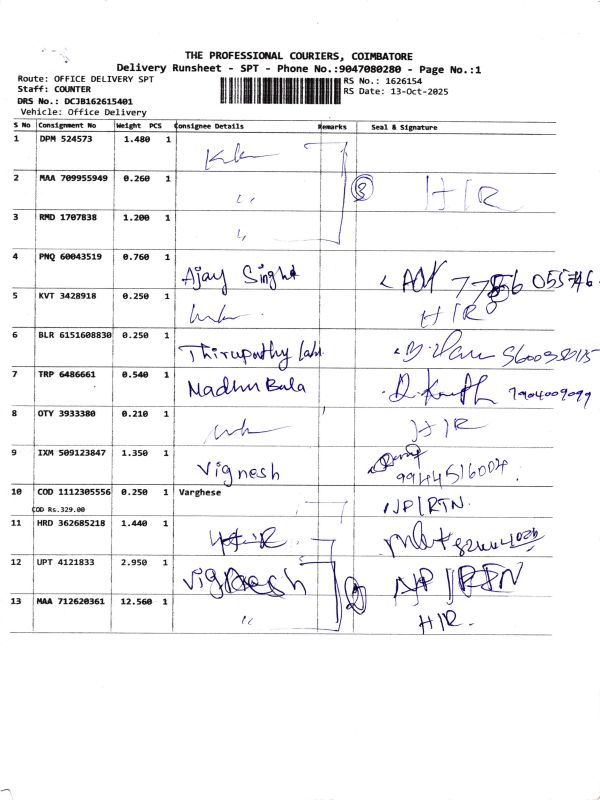 THE PROFESSIONAL COURIERS, COIMBATORE
Delivery Runsheet - SPT - Phone No.:9047080280 - Page No.:1
Route: OFFICE DELIVERY SPT
RS No.: 1626154
Staff: COUNTER
RS Date: 13-Oct-2025
DRS No.: DCJB162615401
Vehicle: Office Delivery
S No Consignment No Weight PCS Consignee Details Remarks Seal & Signature
1 DPM 524573 1.480 1
2 MAA 709955949 0.260 1 ,, 3 HIR
3 RMD 1707838 1.200 1 ,,
4 PNQ 60043519 0.760 1 Ajay Singh
5 KVT 3428918 0.250 1 HIR
6 BLR 6151608830 0.250 1 Thirupathy
7 TRP 6486661 0.540 1 Madhu Bala 7904009099
8 OTY 3933380 0.210 1 HIR
9 IXM 509123847 1.350 1 Vignesh 9944516004
10 COD 1112305556 0.250 1 Varghese NP/RTN
COD Rs.329.00
11 HRD 362685218 1.440 1
12 UPT 4121833 2.950 1
13 MAA 712620361 12.560 1 ,, HIR.